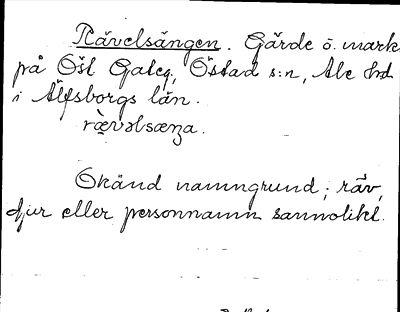 Rävelsängen. Gärde o. mark
på Östl Galeg, Östad s:n, Ale hd
i Älfsborgs län.
rævəlsæŋa.
Okänd namngrund; räv,
djur eller personnamn sannolikt.